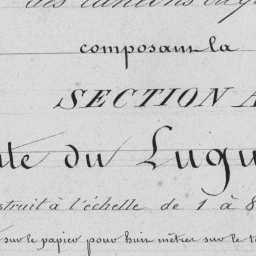 des cantons
composant la
SECTION A
du Lugu
à l'échelle de 1 à 8
sur le papier pour huit mètres sur le t